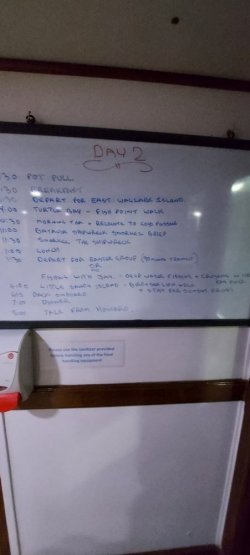 DAY 2
:30 POT PULL
:30 BREAKFAST
:30 DEPART FOR EAST WALLABI ISLAND
9:00 TURTLE BAY - FISH POINT WALK
10:30 MORNING TEA + RELOCATE TO
11:00 BATAVIA SHIPWRECK SNORKEL BRIEF
11:30 SNORKEL THE SHIPWRECK
1:00 LUNCH
1:30 DEPART FOR EASTER GROUP (90 MINS TRANSIT)
OR
- DEEP WATER FISHING
LITTLE SANDY ISLAND -
+ STAY FOR SUNSET DRINKS
BACK ONBOARD
7:00 DINNER
8:00 TALK FROM HOWARD
Please use the sanitizer provided
before handling any of the food
handling equipment